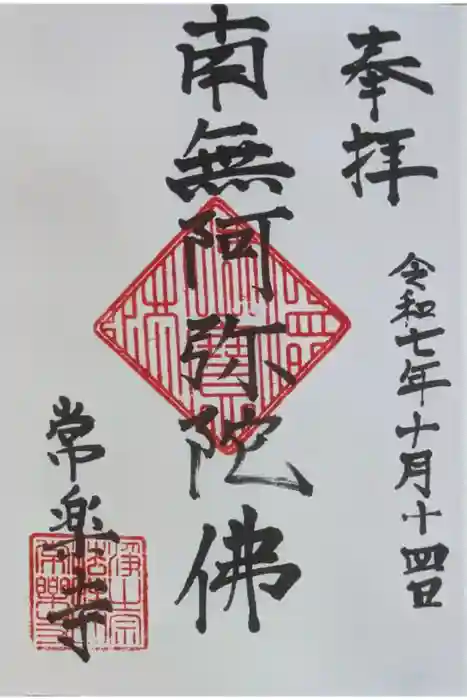 奉拝
令和七年十月十四日
南無阿弥陀佛
常楽寺